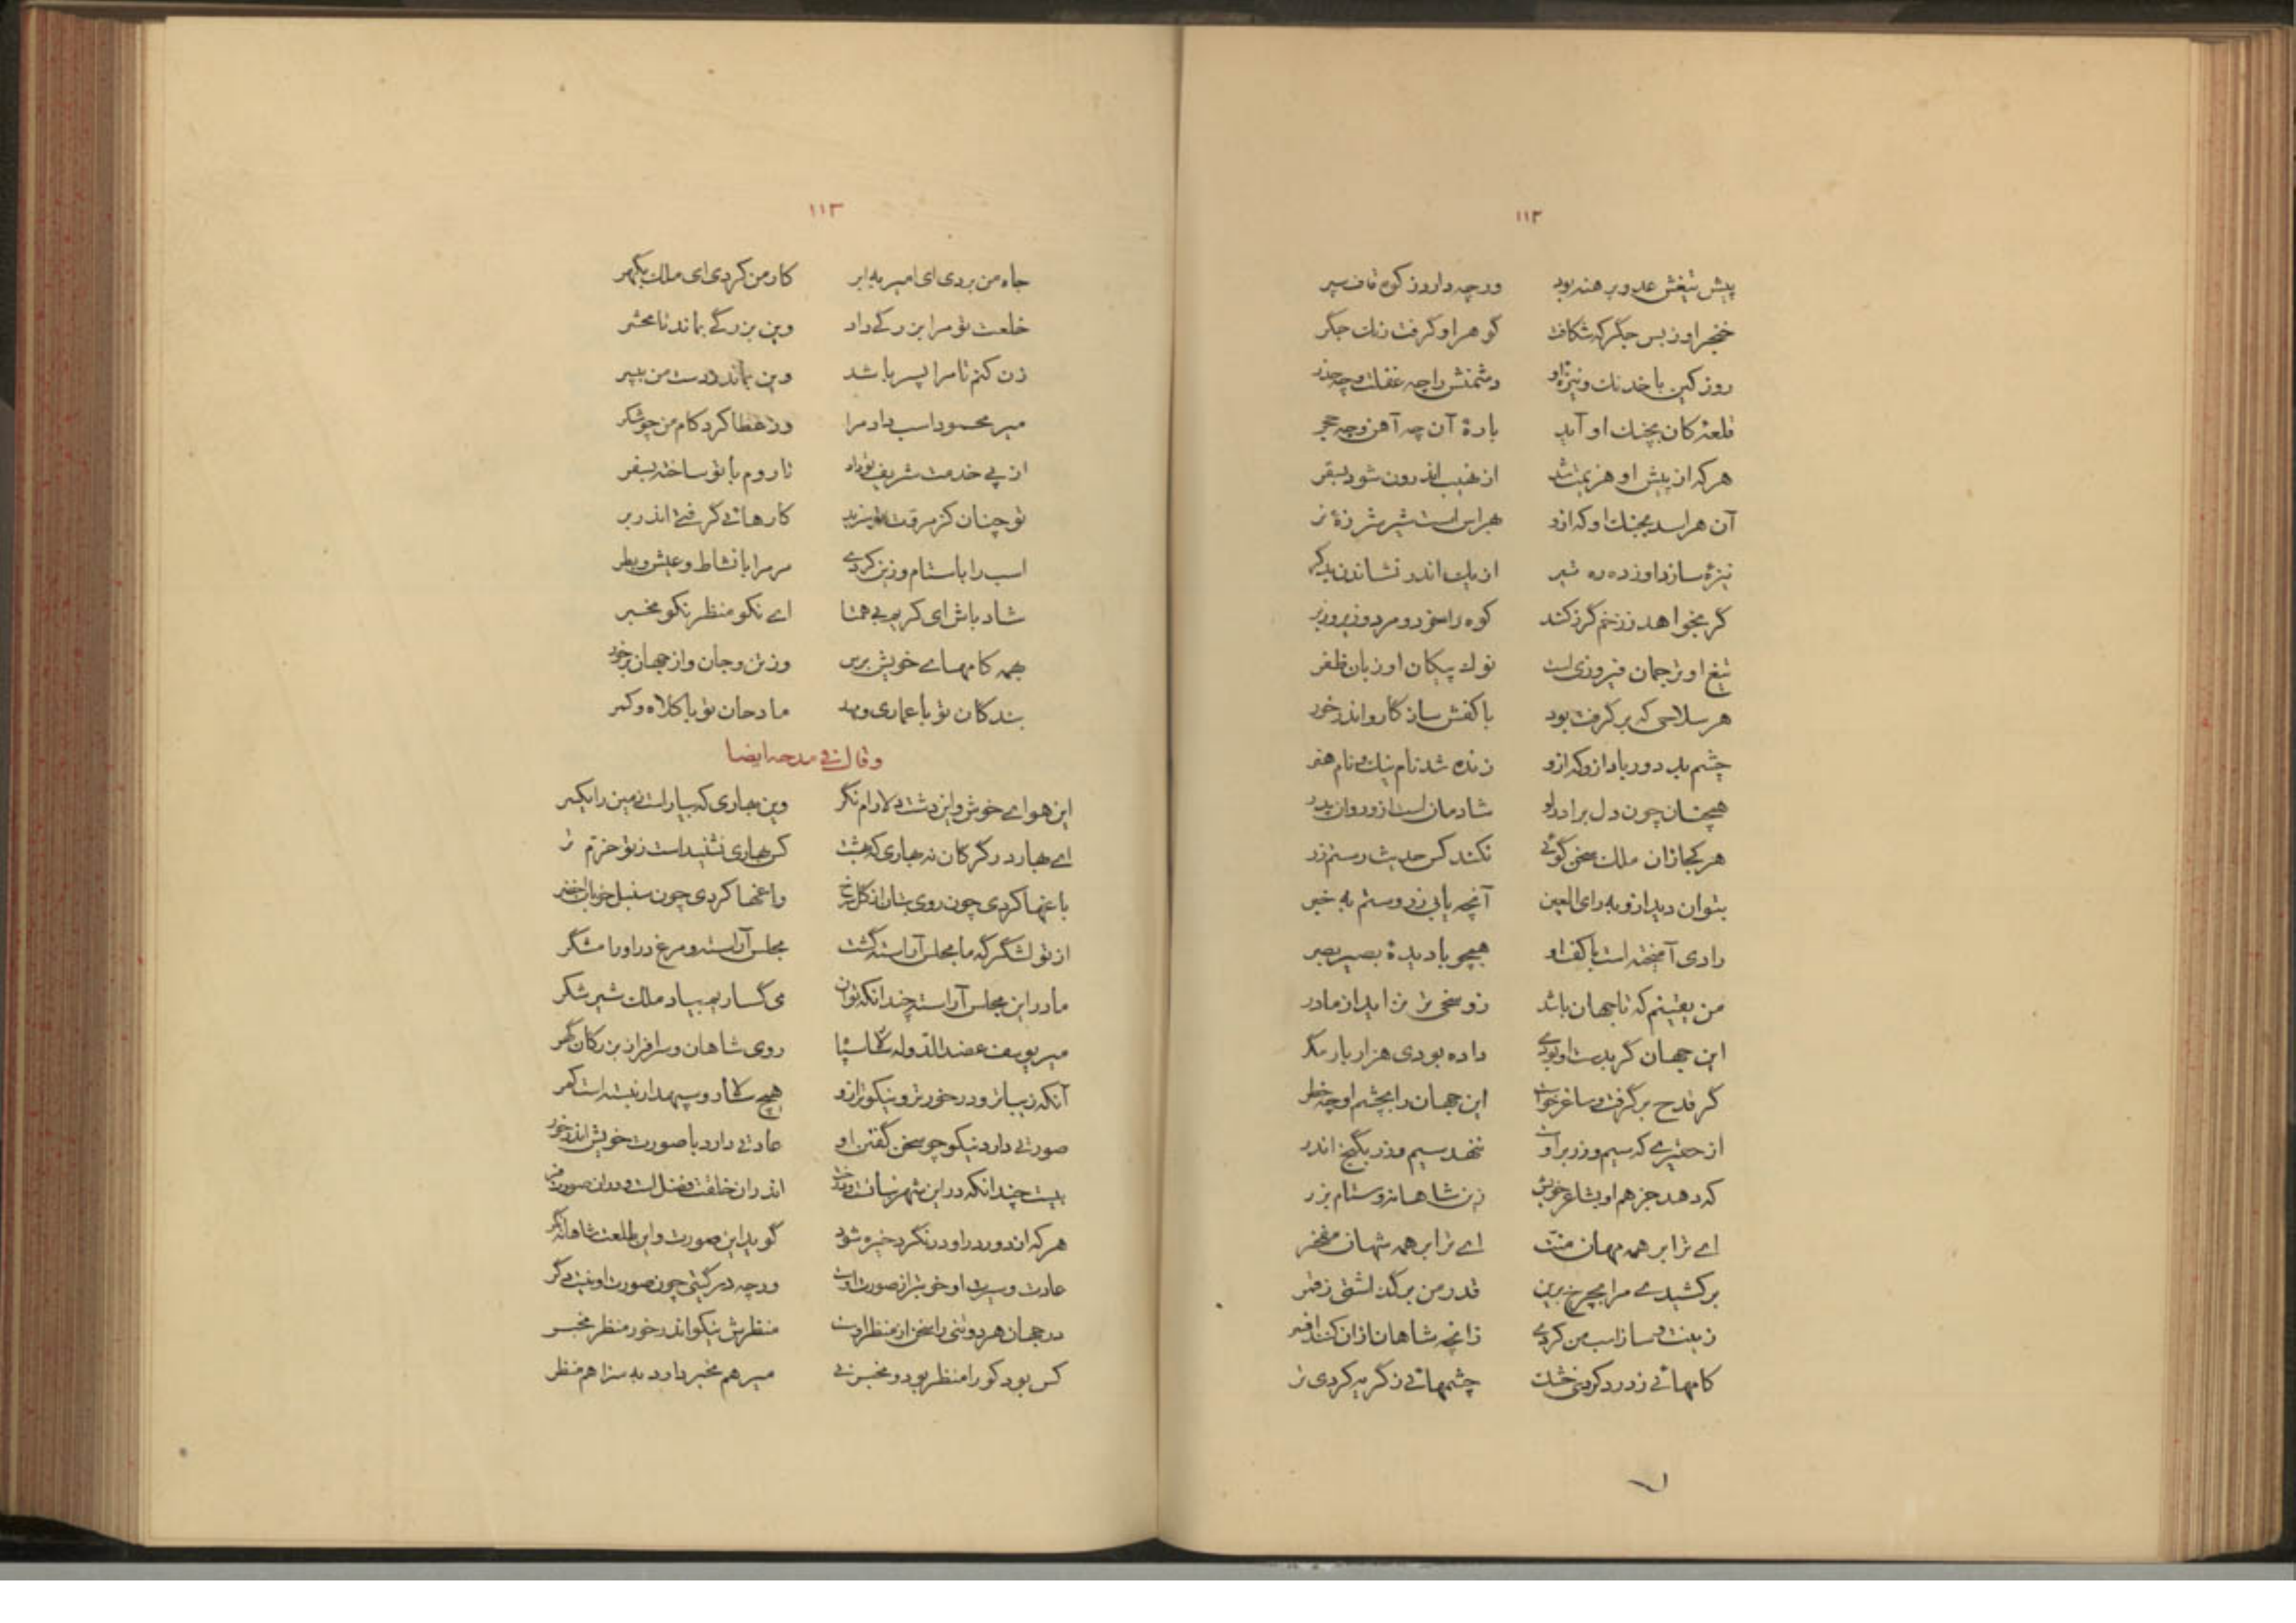 ۱۱۲
پیش تیغش عدو برهنه بود ورچه دارد ز کوه قاف سپر
خنجر او ز بس جگر که شکافت گوهر او گرفت رنگ جگر
روز کین با خدنگ و نیزه او دشمنش را چه غفلت و چه حذر
قلعهٔ کان بجنگ او آید بارهٔ آن چه آهن و چه حجر
هر که از پیش او هزیمت شد از نهیب اندرون شود بسقر
آن هراسد بجنگ او که ازو هراس است شیر شرزهٔ نر
نیزهٔ سازد او ز ده ره تیر از یک اندر نشاندن بدگر
گر بخواهد ز زخم گرز کند کوه را سخر و مرد و زیر و زبر
تیغ او ترجمان فیروزی است نوک پیکان او زبان ظفر
هر سلاسی که برگرفت بود با کفش سازگار و اندر خور
چشم بد دور باد ازو که ازو زنده شد نام نیک و نام هنر
همچنان چون دل برادر او شادمان است ازو روان پدر
هر کجا زان ملک سخن گوئی نکند کس حدیث رستم زر
بتوان دید ازو به رای العین آنچه یابی ز روستم به خبر
رادی آمیخته است با کف او همچو با دیدهٔ بصیر بصر
من یقینم که تا جهان باشد زو سخی تر نزاید از مادر
این جهان گر بدست او بودی داده بودی هزار بار مگر
گر قدح برگرفت و ساغر خواست این جهان را بچشم او چه خطر
از حقیری که سیم و زر بر اوست ننهد سیم و زر بگنج اندر
که دهد جز هم او بشاعر خویش زین شاهانه و ستام بزر
اے ترا بر همه مهان منت اے ترا بر همه شهان مفخر
برکشیدے مرا بچرخ برین قدر من برگذاشتی ز قمر
زینت و ساز اسب من کردے زانچه شاهان ازان کنند افسر
کامهائے ز درد کردی خشک چشمهائے ز گریه کردی تر
۱۱۳
جاه من بردی ای امیر به ابر کار من کردی ای ملک یکهر
خلعت تو مرا بزرگے داد وین بزرگے بماند تا محشر
زن کنم تا مرا پسر باشد وین بماند درست من بپسر
میر محمود اسب داد مرا وز عطا کرد کام من چو شکر
از پے خدمت شریف تو داد تا روم با تو ساخته بسفر
تو چنان کز مروت تو سزید کارهائے گرفتے اندر بر
اسب را با ستام و زین کردے مر مرا با نشاط و عیش و بطر
شاد باش ای کریم بی همتا اے نکو منظر نکو مخبر
بهمه کامهاے خویش برس وز تن و جان و از جهان برخور
بندگان تو با عماری و مهد مادحان تو با کلاه و کمر
وقال فی مدحه ایضا
این هواے خوش و این دشت دلارام نگر وین بهاری که بیاراست زمین را یکسر
اے بهار در گرگان نه بهاری که بهشت کس بهاری نشنیداست ز تو خرم تر
باغها کردی چون روی بتان از گل سرخ راغها کردی چون سنبل خوبان اخضر
از تو لشگر که ما مجلس آراسته گشت مجلس آراسته و مرغ در او رامشگر
ما در این مجلس آراسته چندانکه توان می گساریم بیاد ملک شیر شکر
میر یوسف عضد الدوله روی شاهان و سرافراز بزرگان گهر
آنکه زیباتر و درخورتر و نیکوتر ازو هیچ سالار و سپهدار نبسته است کمر
صورتے دارد نیکو چو سخن گفتن او عادتے دارد با صورت خویش اندر خور
نیست چندانکه در این شهر اندر ان خلقت فضل است و در ان صورت
هر که از دور در او در نگرد خیره شود گوید این صورت و این طلعت شاهانه نگر
عادت و سیرت او خوبتر از صورت اوست ورچه در گیتی چون صورت او نیست دگر
در جهان هر دو تنی را سخن از منظر اوست منظرش نیکو اندر خور منظر مخبر
کس بود کو را منظر بود و مخبر نے میر هم مخبر دارد به سزا هم منظر